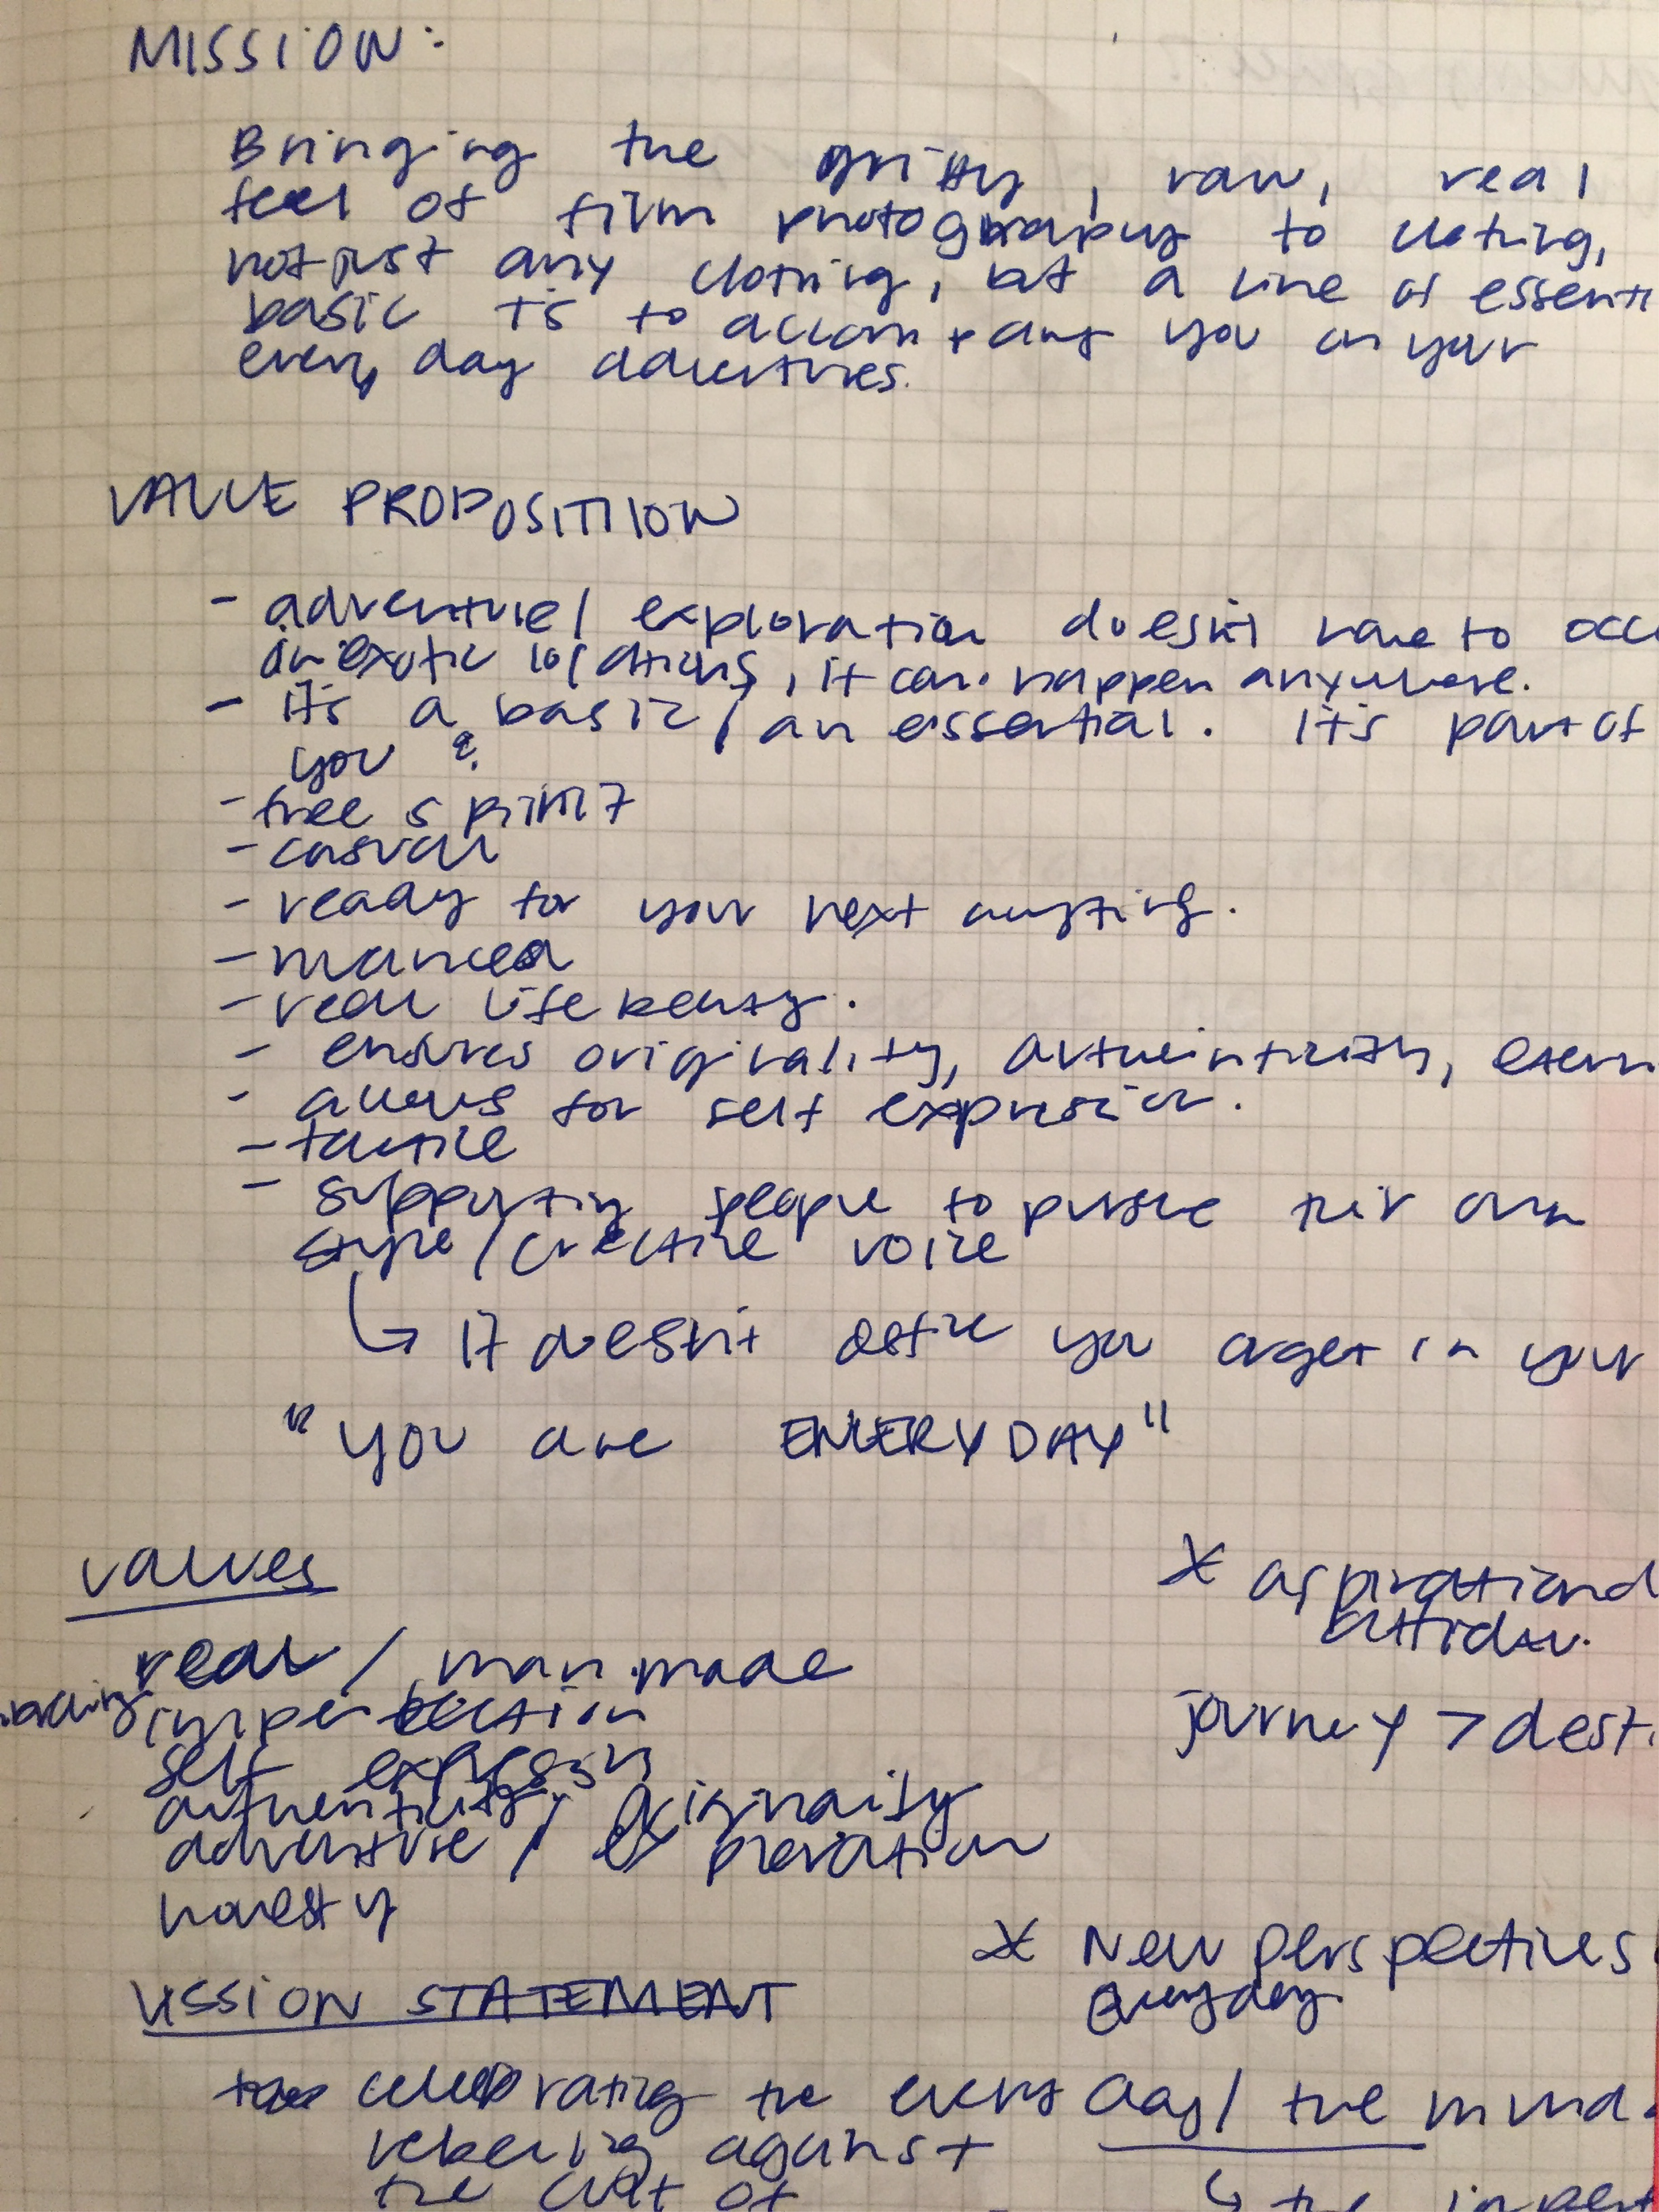 MISSION:
Bringing the gritty, raw, real
feel of film photography to clothing,
not just any clothing, but a line of essenti
basic Ts to accompany you on your
every day adventures.
VALUE PROPOSITION
- adventure/ exploration doesn't have to occu
in exotic locations, it can happen anywhere.
- It's a basic, an essential. It's part of
you
- free spirit
- casual
- ready for your next anything.
- nuanced
- real life beauty.
- ensures originality, authenticity,
- allows for self expression.
- tactile
- supporting people to pursue their own
style/creative voice
↳ It doesn't define you in your
"YOU are EVERYDAY"
values
real / man.made
imperfection
self expression
authenticity / originality
adventure / exploration
honesty
* aspirational
journey > dest
* New perspectives
Everyday
STATEMENT
celebrating the every day/ the munda
rebelling against
the cult of
↳ the